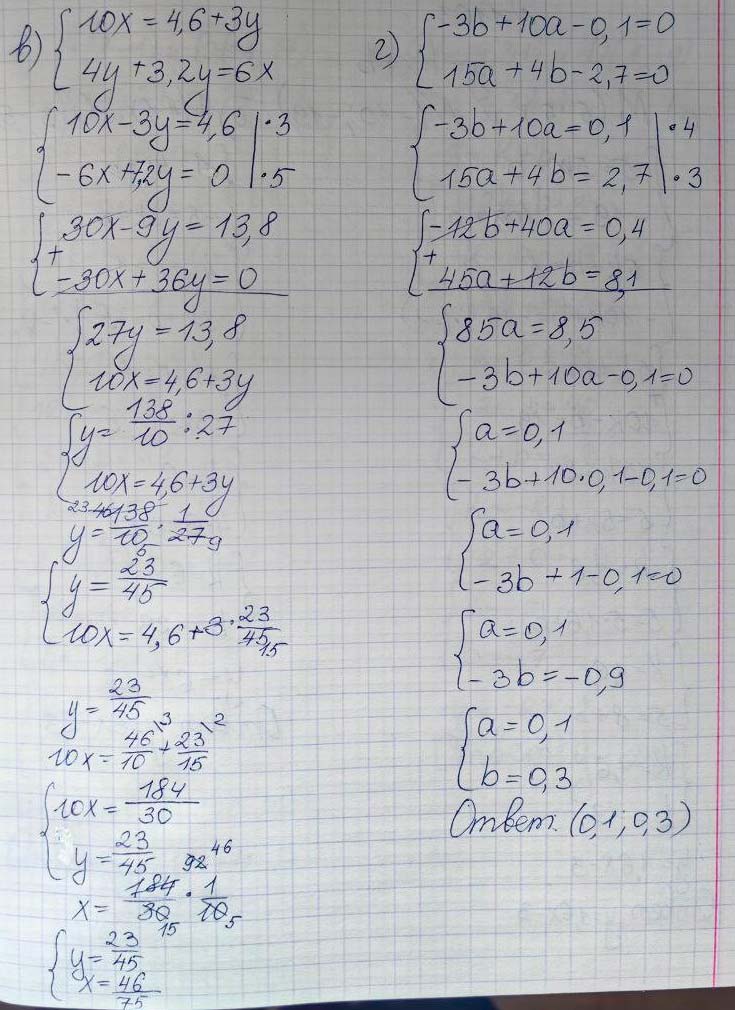 в) { 10x = 4,6 + 3y
4y + 3,2y = 6x
{ 10x - 3y = 4,6 | · 3
- 6x + 7,2y = 0 | · 5
{ 30x - 9y = 13,8
+
- 30x + 36y = 0
{ 27y = 13,8
10x = 4,6 + 3y
{ y = 138/10 : 27
10x = 4,6 + 3y
23 46
y = 138/10 · 1/27
5 9
{ y = 23/45
10x = 4,6 + 3 · 23/45
15
y = 23/45
10x = 46/10 \3 + 23/15 \2
{ 10x = 184/30
y = 23/45
92 46
x = 184/30 · 1/10
15 5
{ y = 23/45
x = 46/75
г) { -3b + 10a - 0,1 = 0
15a + 4b - 2,7 = 0
{ -3b + 10a = 0,1 | · 4
15a + 4b = 2,7 | · 3
{ -12b + 40a = 0,4
+
45a + 12b = 8,1
{ 85a = 8,5
-3b + 10a - 0,1 = 0
{ a = 0,1
- 3b + 10 · 0,1 - 0,1 = 0
{ a = 0,1
- 3b + 1 - 0,1 = 0
{ a = 0,1
- 3b = -0,9
{ a = 0,1
b = 0,3
Ответ: (0,1; 0,3)